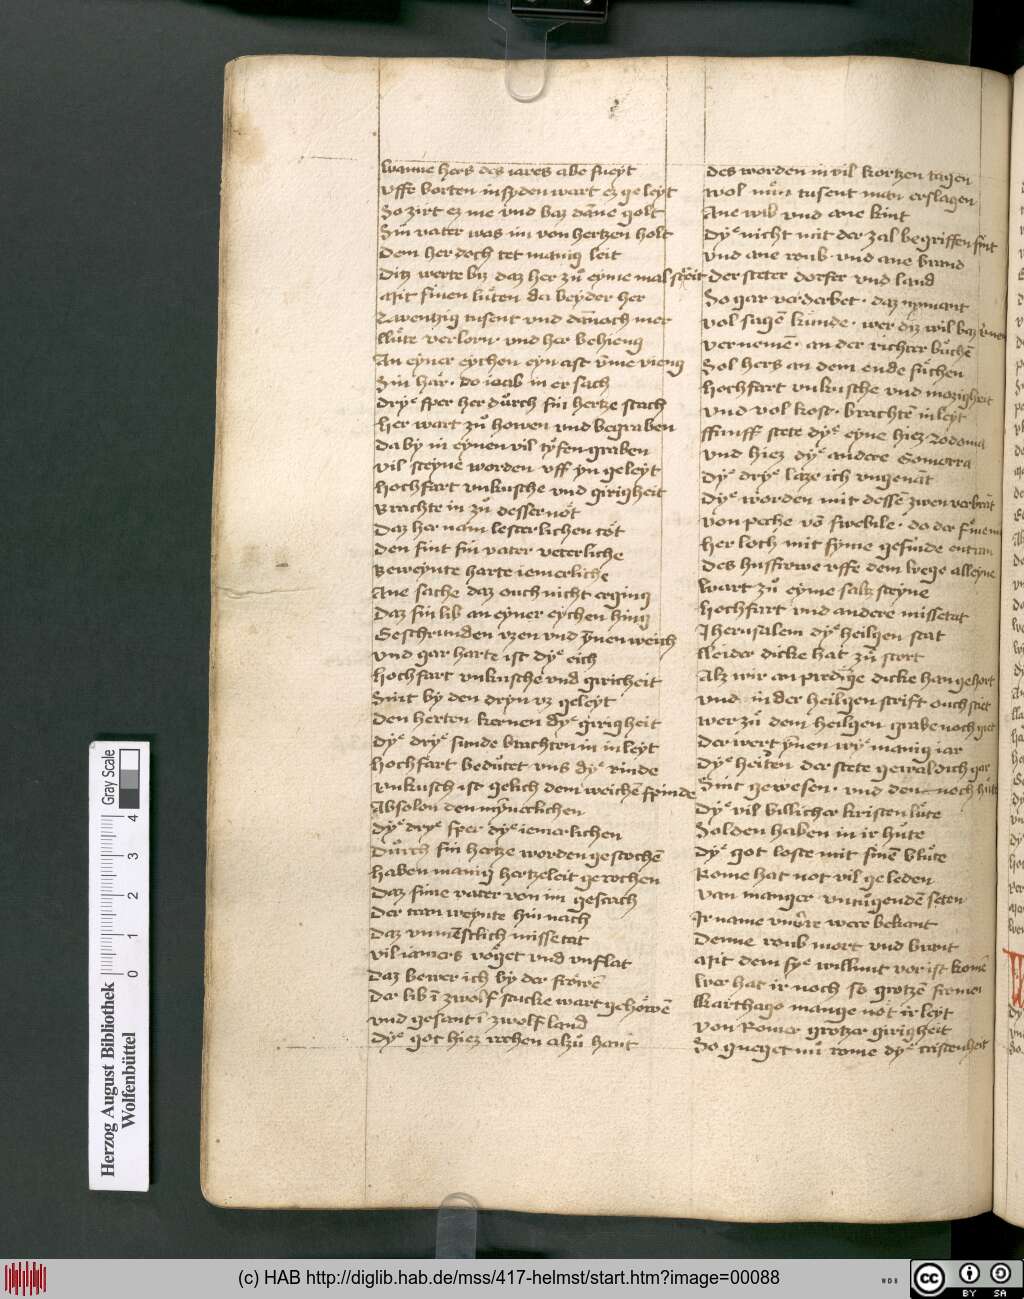 Wanne hers des iares abe sneyt
Vffe borten in syden wart ez geleyt
So zirt ez me vnd baz dāne golt
Sin vater was im von hertzen holt
Dem her doch tet manig leit
Ditz werte biz daz her zů eyme mal streit
Mit sinen lůten da beyder her
Zwentzig tusent vnd dānoch mer
Lůte verlorn · vnd her behieng
An eyner eychen eyn ast vme vieng
Sin hār · do ioab in er sach
Drye sper her důrch sin hertze stach
Her wart zů howen vnd begraben
Da by in eynen vil tyfen graben
Vil steyne worden vff yn geleyt
Hochfart vnkusche vnd girigheit
Brachte in zů desser nōt
Daz her nam lesterlichen tōt
Den sint sin vater veterliche
Beweynte harte iemerliche
Ane sache daz ouch nicht erging
Daz sin lib an eyner eychen hing
Geschrunden vzen vnd ynnen weich
Vnd gar harte ist dye eich
Hochfart vnkusche vnd giricheit
Sint by den dryn vz geleyt
Den herten kernen dye girigheit
Dye drye sunde brachten in in leyt
Hochfart bedůtet vns dye rinde
Vnkusch ist gelich dem weichē spinde
Absolon den mynerlichen
Dye drye sper dye iemerlichen
Důrch sin hertze worden gestochē
Haben manig hertzeleit gerochen
Daz sime vater von im geschach
Der tran weynte hin nach
Daz vnmēschlich missetat
Vil iamers vōget vnd vnflat
Daz bewer ich by der frōwē
Der lib ī zwolf stucke wart gehōwē
Vnd gesant ī zwolf land
Dye got hiez rechen alzů hant
Des worden in vil kortzen tagen
Wol nůn tusent man erslagen
Ane wib vnd ane kint
Dye nicht mit der zal begriffen sint
Vnd ane roub · vnd ane brand
Der steter dorfer vnd land
So gar vorderbet · daz nymant
Vol sagē kunde · wer diz wil baz
Vernemē · an der richter bůchē
Sol hers an dem ende sůchen
Hochfart vnkusche vnd mozigheit
Vnd vol kost · brachtē in leyt
Fumff stete dye eyne hiez zodoma
Vnd hiez dye andere Gomorra
Dye drye laze ich vngenāt
Dye worden mit dessē zwen verbrāt
Von peche vō swebile · do der
Her loth mit syme gesinde entran
Des husfrowe vffe dem wege alleyne
Wart zů eyme saltz steyne
Hochfart vnd andere missetat
Jherusalem dye heilgen stat
Leider dicke hat zů stort
Alz wir an predige dicke han gehort
Vnd in der heilgen schrift ouch stet
Wer zů dem heilgen grabe noch get
Der wert ynnen wye manig iar
Dye heiden der stete geweldich gar
Sint gewesen · vnd den noch hůte
Dye vil billicher kristen lůte
Solden haben in ir hůte
Dye got loste mit sinē blůte
Rome hat not vil geleden
Van manger vntůgenden seten
Ir name vnere were bekant
Denne roub mort vnd brant
Mit dem sye willint vor ist komē
Wer hat ir noch so grotzē fromen
Karthago mange nōt ir leyt
Von Romer grotzer girigheit
So queget nů rome dye cristenheit
Herzog August Bibliothek
Wolfenbüttel
0 1 2 3 4
Gray Scale
(c) HAB http://diglib.hab.de/mss/417-helmst/start.htm?image=00088
WDB
cc BY SA